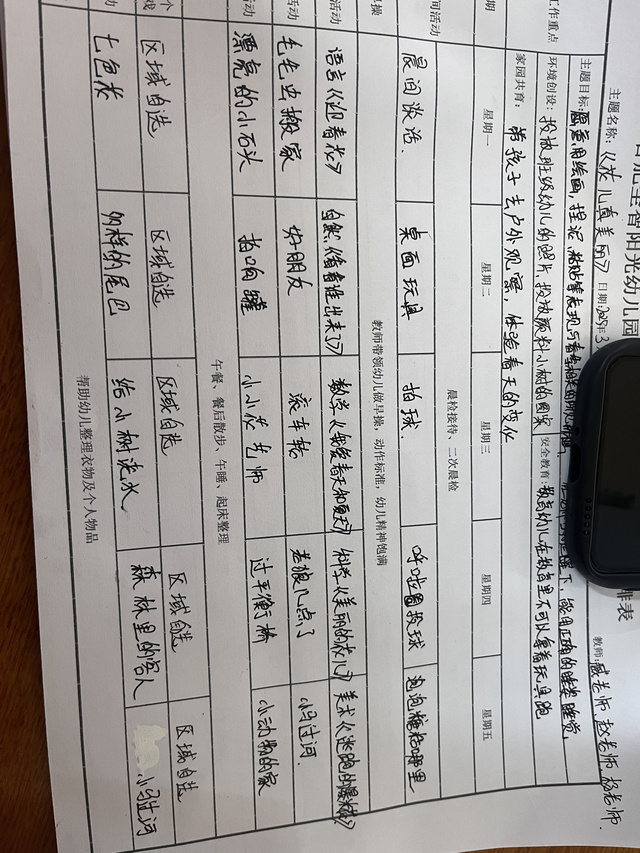 智阳光幼儿园
排表
主题名称：《花儿真美丽》 日期：2025年3
教师：戚老师 赵老师 杨老师
工作重点
主题目标：愿意用绘画，捏泥，粘贴等表现
下，能用正确的睡姿睡觉。
环境创设：投放班级幼儿的照片，投放颜料小树的图案
安全教育：教育幼儿在教室里不可以拿着玩具跑
家园共育：带孩子去户外观察，体验春天的变化
期 星期一 星期二 星期三 星期四 星期五
晨检接待、二次晨检
间活动 晨间谈话. 桌面玩具 拍球. 呼啦圈投球 泡泡糖粘哪里
早操 教师带领幼儿做早操，动作标准，幼儿精神饱满
活动 语言《迎春花》 自然《看看谁出来了》 数学《我爱春天和夏天》 科学《美丽的花儿》 美术《逃跑的爆米花》
活动 毛毛虫搬家 好朋友 滚车轮 老狼几点了 小马过河.
活动 漂亮的小石头 拍响罐 小小花艺师 过平衡桥 小动物的家
午餐、餐后散步、午睡、起床整理
区域自选 区域自选 区域自选 区域自选 区域自选
七色花 多样的尾巴 给小树浇水 森林里的客人 小马过河
帮助幼儿整理衣物及个人物品